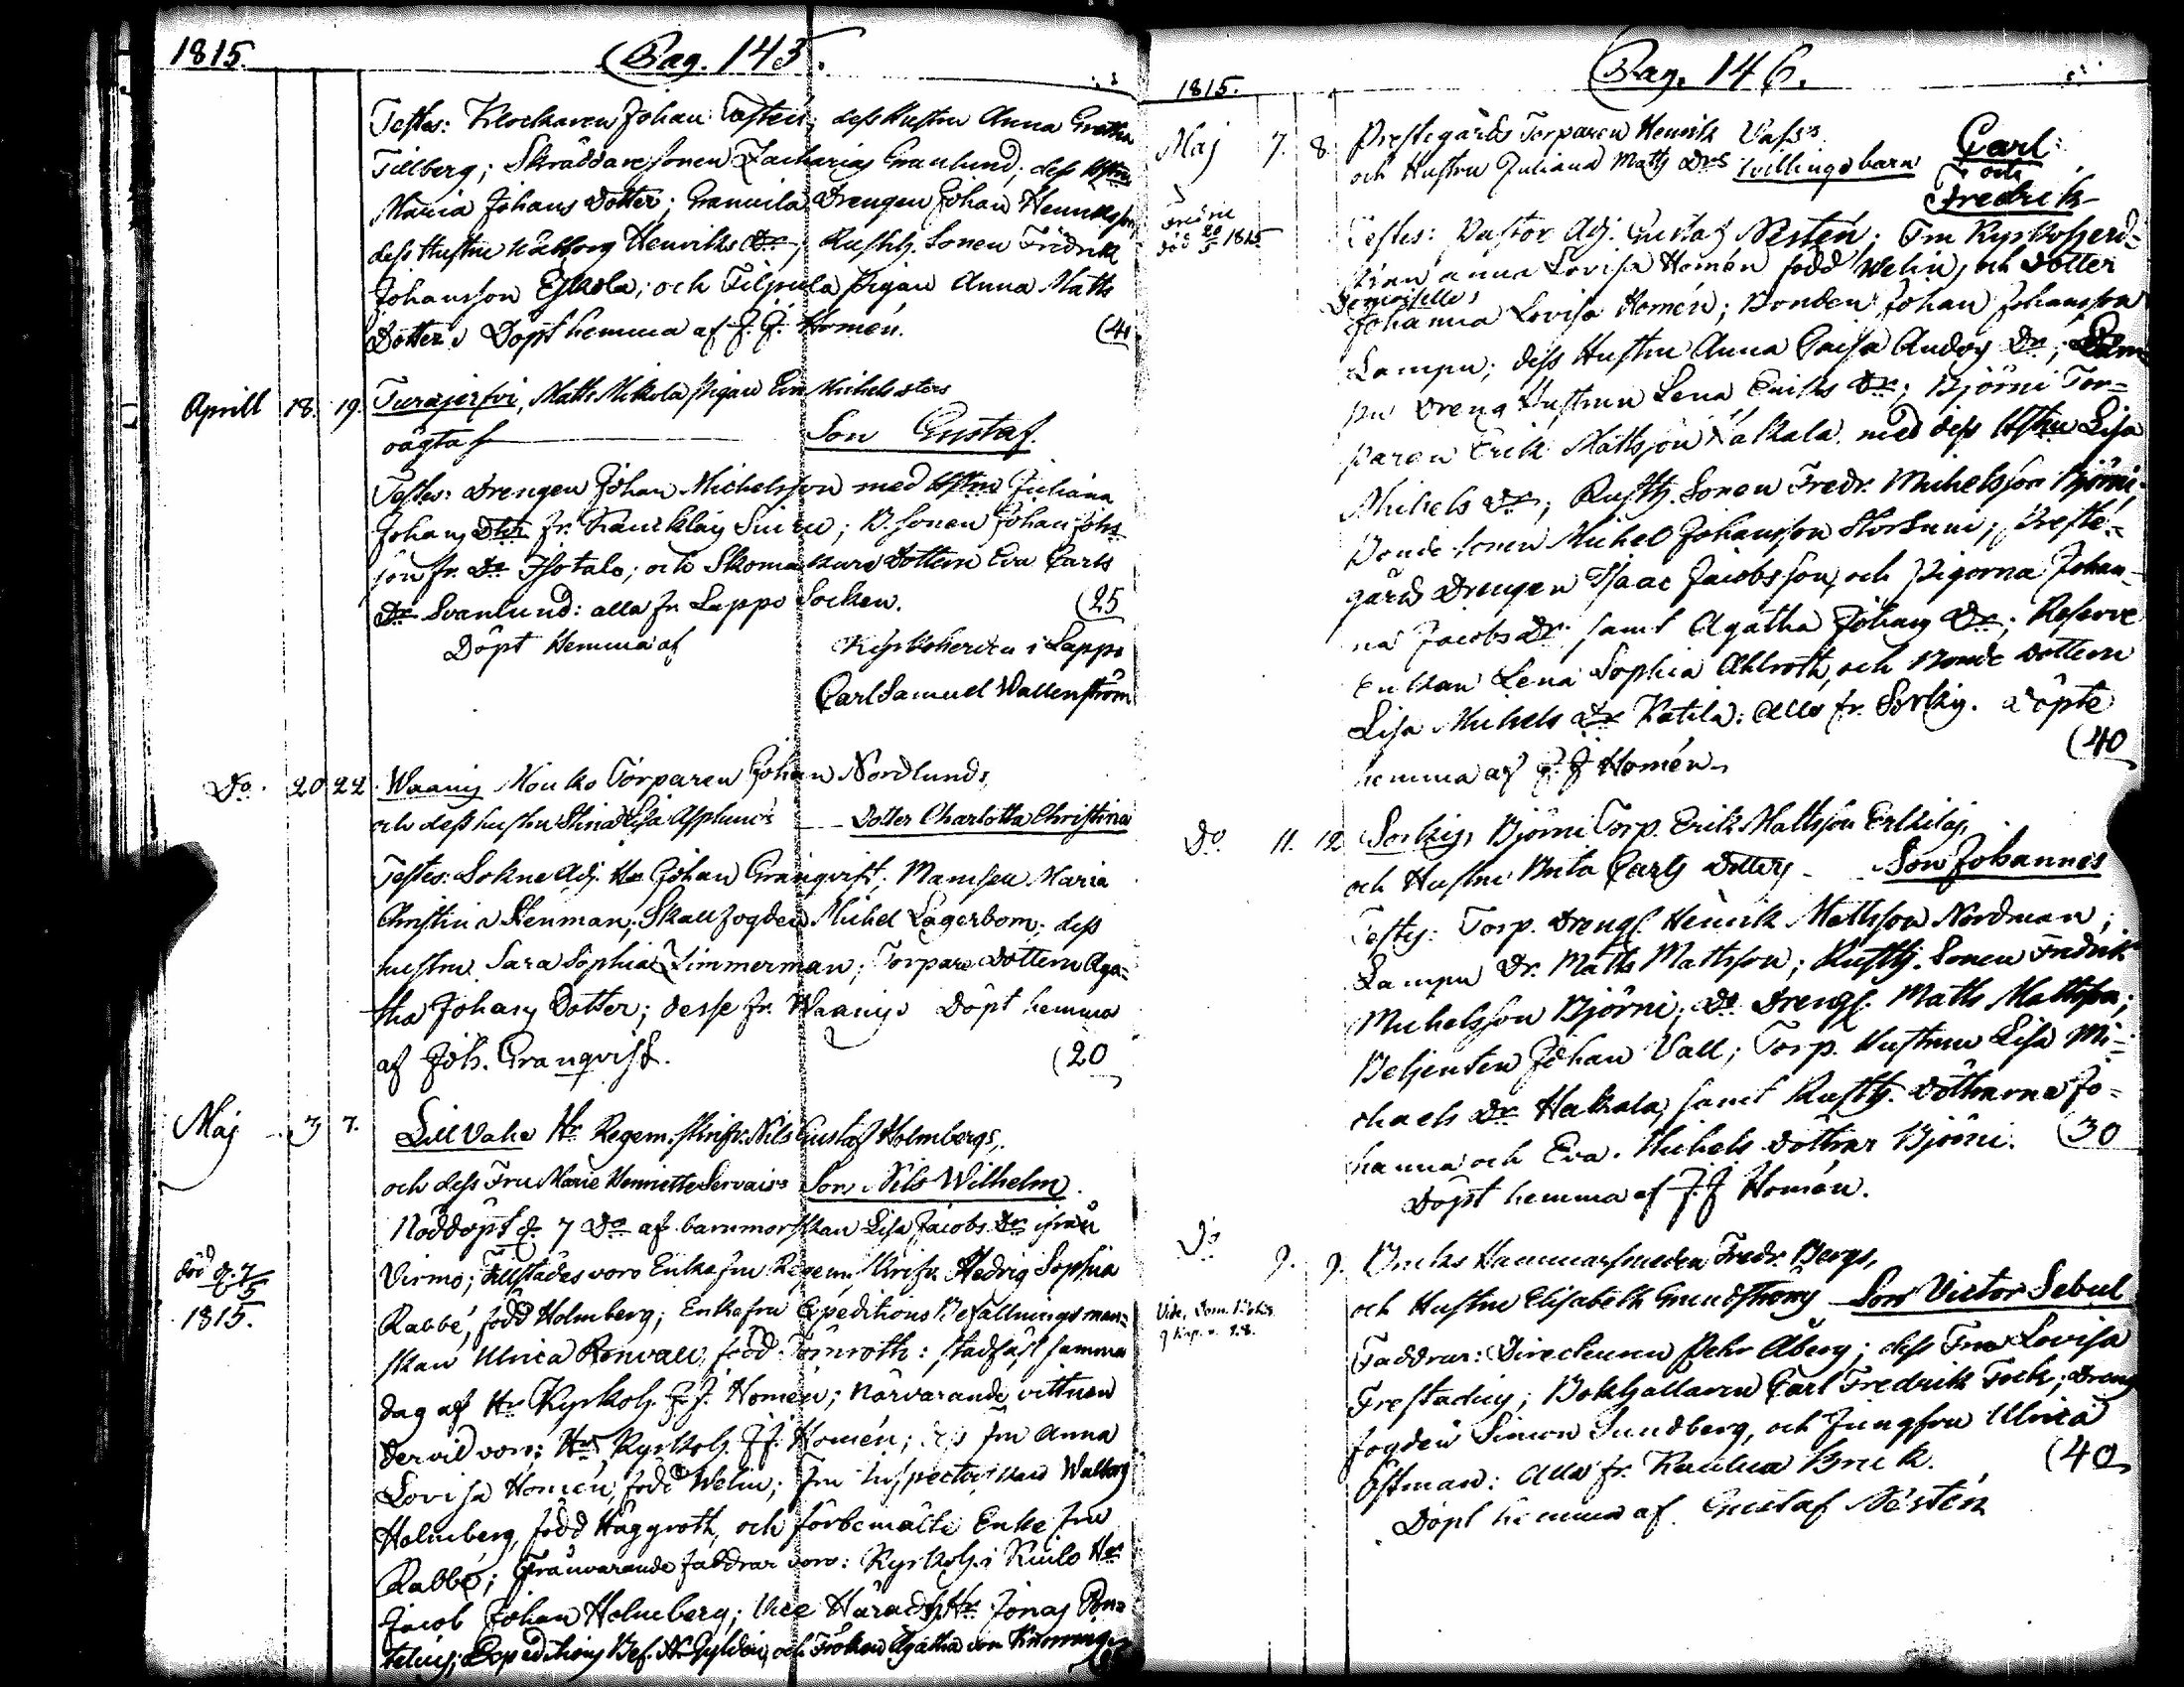 1815. Pag. 145.
Testes: Klockaren Johan Tasten; dess Hustru Anna Gretha
Tillberg; Skräddare sonen Zacharias Granlund; dess Hstru
Maria Johans Dotter; Gamila Drengen Johan Henriksson,
dess Hustru Wallborg Henriks Dr; Rusth. Sonen Fridrik
Johansson Eskola; och Filpula pigan Anna Matts
Dotter. Döpt hemma af J. J. Homén. (41
Aprill 18. 19. Turajerfvi, Matts Mikola pigan Eva Michelsdters
oägta Son Gustaf.
Testes: Drengen Johan Michelsson med Hstru Juliana
Johans Dtr fr. Sniru; B. sonen Johan Johs
son fr. Do Isotalo; och Skomakare Dottern Eva Carls
Dr Svanlund: alla fr. Lappo Socken. (25
Döpt Hemma af Kyrkoherden i Lappo
Carl Samuel Wallenström
Do. 20 22 Waanij Mouko Torparen Johan Nordlunds,
och dess hustru Stina Lisa Asplunds Dotter Charlotta Christina
Testes: Sokne Adj. Hr Johan Granqvist; Mamsell Maria
Christina Stenman; Skallfogden Michel Lagerbom; dess
hustru Sara Sophia Zimmerman; Torpare Dottern Aga-
tha Johans Dotter; desse fr. Waanij. Döpt hemma
af Joh. Granqvist. (20
Maj 3 7. Lill Vahe Hr Regem. skrifv. Nils Gustaf Holmbergs,
och dess Fru Marie Henriette Servais's Son Nils Wilhelm.
Nöddöpt d. 7 Do af barnmorskan Lisa Jacobs Dr ifrån
död d. 7/5 Virmo; Tillstädes voro Enkefru Regem. Skrifv. Hedvig Sophia
1815. Rabbé, född Holmberg; Enkefru Expeditions Befallningsman-
skan Ulrica Renvall, född Lönroth: stadfäst samma
dag af Hr Kyrkoh. J. J. Homén; närvarande vittnen
dervid voro: Hr Kyrkoh. J. J. Homén; dess fru Anna
Lovisa Homén, född Welin; Fru Inspectorskan Walborg
Holmberg, född Häggroth, och förbemälte Enke fru
Rabbé; Frånvarande faddrar voro: Kyrkoh. i Kiulo Hr
Jacob Johan Holmberg; Vice Häradsh. Hr Jonas Pon-
telius; Expeditions Bef. Hr Gyldén, och Fröken Agatha von
1815. Pag. 146.
Maj 7. 8. Prestegårds Torparen Henrik Vass's Carl
och Hustru Juliana Matts Drs tvillingsbarn och
Fredrik
Fredric död 20/5 1815 Testes: Pastor Adj. Gustaf Nestén; Fru Kyrkoherd-
skan Anna Lovisa Homén född Welin, och Dotter
Demoiselle Johanna Lovisa Homén; Bonden Johan Johansson
Lampu; dess Hustru Anna Caisa Anders Dr; Lam-
pu Dreng Hustrun Lena Eriks Dr; Björni Tor-
paren Erik Mattsson Hakala, med dess Hstru Lisa
Michels Dr; Rusth. Sonen Fredr. Michelsson Björni;
Bonde sonen Michel Johansson Storsuni; Preste-
gårds Drengen Isaac Jacobsson, och pigorna Johan-
na Jacobs Dr samt Agatha Johans Dr; Reserve
enkan Lena Sophia Ahlroth, och Bonde dottern
Lisa Michels Dr Katila: alla fr. Sorkis. Döpte
hemma af J. J. Homén. (40
Do 11. 12 Sorkis, Björni Torp. Erik Mattsson Erkilas,
och Hustru Brita Carls Dotters Son Johannes
Testes: Torp. Drengs. Henrik Mattsson Nordman;
Lampu Dr. Matts Mattsson; Rusth. Sonen Fredrik
Michelsson Björni; Do Drengs. Matts Mattsson;
Betjenten Johan Vall; Torp. Hustrun Lisa Mi-
chaels Dr Hakala, samt Rusth. döttrarna Jo-
hanna och Eva Michels döttrar Björni. (30
Döpt hemma af J. J. Homén.
Do 9. 9. Bruks Hammarsmeden Fredr. Bergs,
och Hustru Elisabeth Grundströms Son Victor Sebul
Faddrar: Directeuren Pehr Åberg; dess Fru Lovisa
Frestadius; Bokhållaren Carl Fredrik Fock; Dreng
fogden Simon Sundberg, och Jungfru Ulrica
Östman: alla fr. Kauttua Bruk. (40
Döpt hemma af Gustaf Nestén